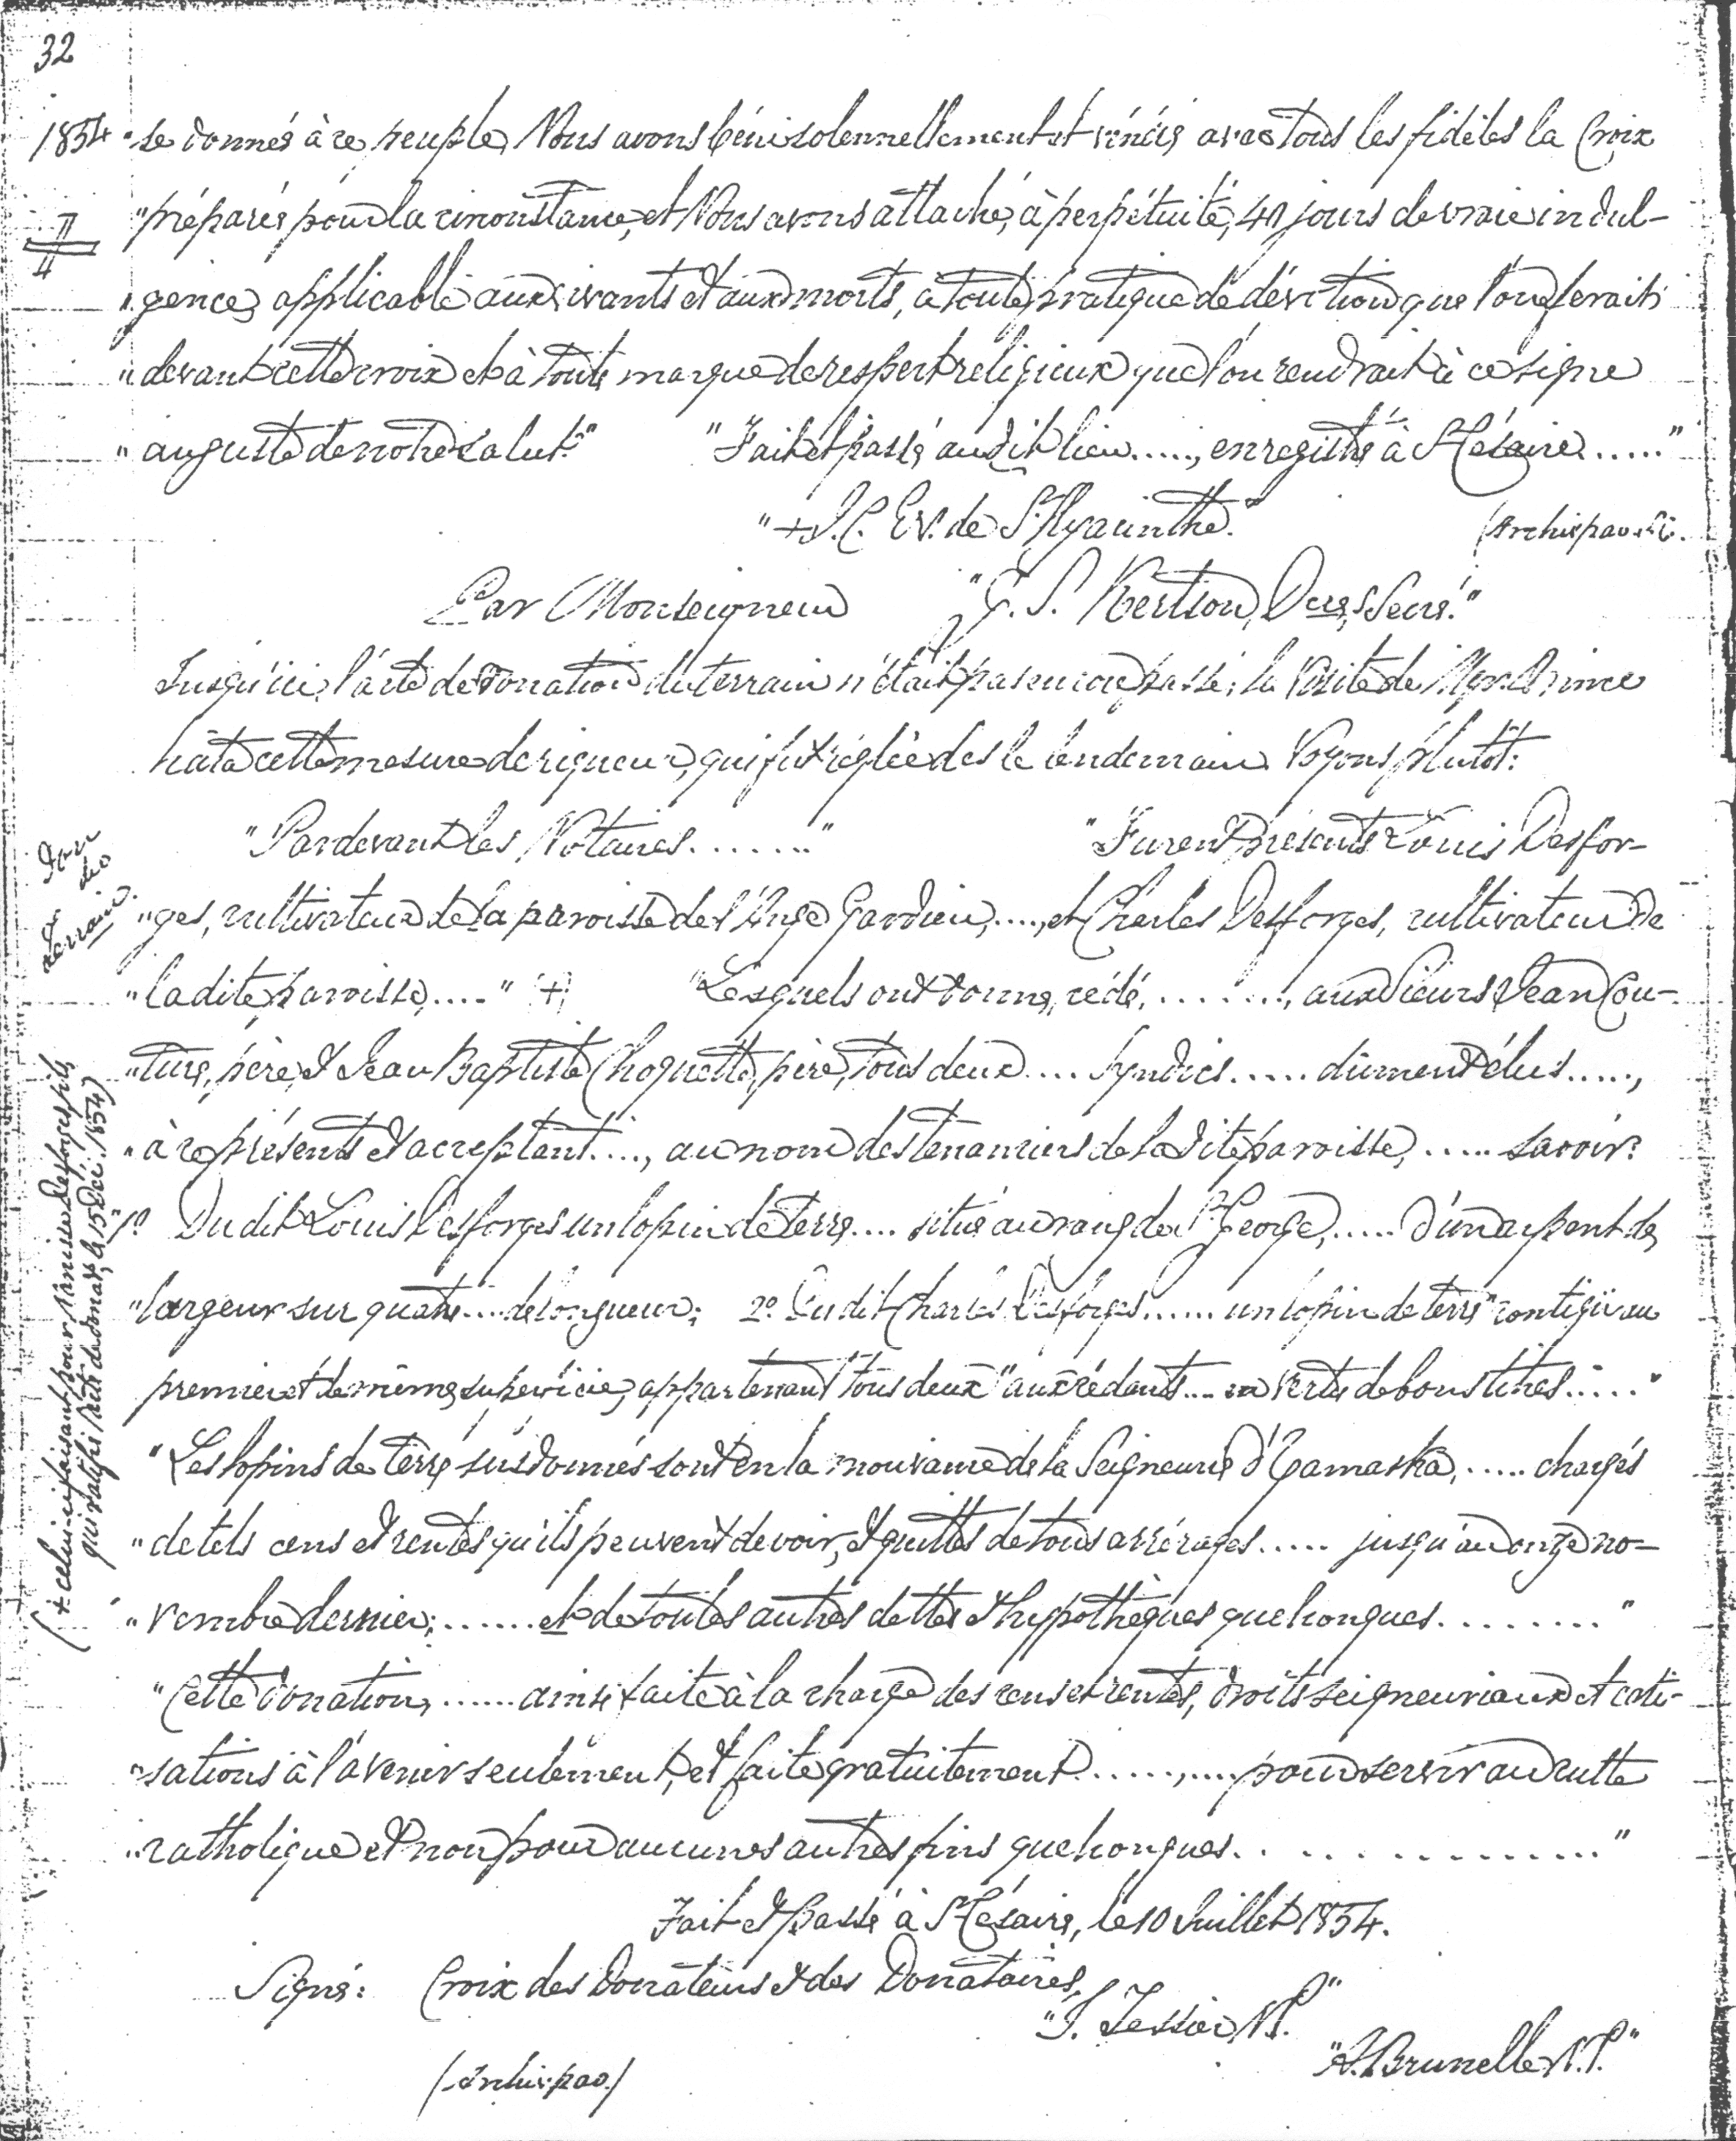 32
1854 "se donnés à ce peuple, Nous avons béni solennellement et vénéré avec tous les fidèles la Croix
"préparée pour la circonstance, et Nous avons attaché, à perpétuité, 40 jours de vraie indul-
"gence, applicable aux vivants et aux morts, à toute pratique de dévotion que l'on ferait
"devant cette croix et à toute marque de respect religieux que l'on rendrait à ce signe
"auguste de notre salut." "Fait et passé audit lieu....., enregistré à St Césaire....."
"+ J. C. Ev. de St Hyacinthe." (Archiv. par.
Par Monseigneur "Secré."
Jusqu'ici, l'acte de donation du terrain n'était pas encore passé; la Visite de Mgr. Prince
hâta cette mesure de rigueur, qui fut réglée dès le lendemain. Voyons plutôt:
Don
du
terrain.
"Pardevant les Notaires......." "Furent Présents Louis Desfor-
"ges, cultivateur de la paroisse de l'Ange Gardien,...., et Charles Desforges, cultivateur de
"ladite paroisse,...." (+) "Lesquels ont donné, cédé,........, aux Sieurs Jean Cou-
"ture, père, & Jean Baptiste Choquette, père, tous deux.... Syndics..... dûment élus.....,
"à ce présents & acceptant....., au nom des tenanciers de la dite paroisse,..... savoir:
"1º Dudit Louis Desforges un lopin de terre.... situé au rang de St George,..... d'un arpent de
"largeur sur quatre.... de longueur; 2º Dudit Charles Desforges...... un lopin de terre" contigü au
premier et de même superficie, appartenant tous deux "aux cédants.... en vertu de bons titres....."
"Les lopins de terre susdonnés sont en la mouvance de la Seigneurie d'Yamaska,..... chargés
"de tels cens et rentes qu'ils peuvent devoir, & quittes de tous arrérages..... jusqu'au onze no-
"vembre dernier;....... et de toutes autres dettes & hypothèques quelconques........"
"Cette donation,...... ainsi faite à la charge des cens et rentes, droits seigneuriaux et coti-
"sations à l'avenir seulement, et faite gratuitement......,.... pour servir au culte
"catholique et non pour aucunes autres fins quelconques. . . . . . . . . . . . . ."
Fait & passé à St Césaire, le 10 Juillet 1854.
Signé: Croix des Donateurs & des Donataires,
"J. Tessier N.P."
"A. Brunelle N.P."
(Archiv. par.)
(+ celui-ci faisant pour Desforges fils
qui ratifia l'acte de donat., le 15 Déc. 1854)